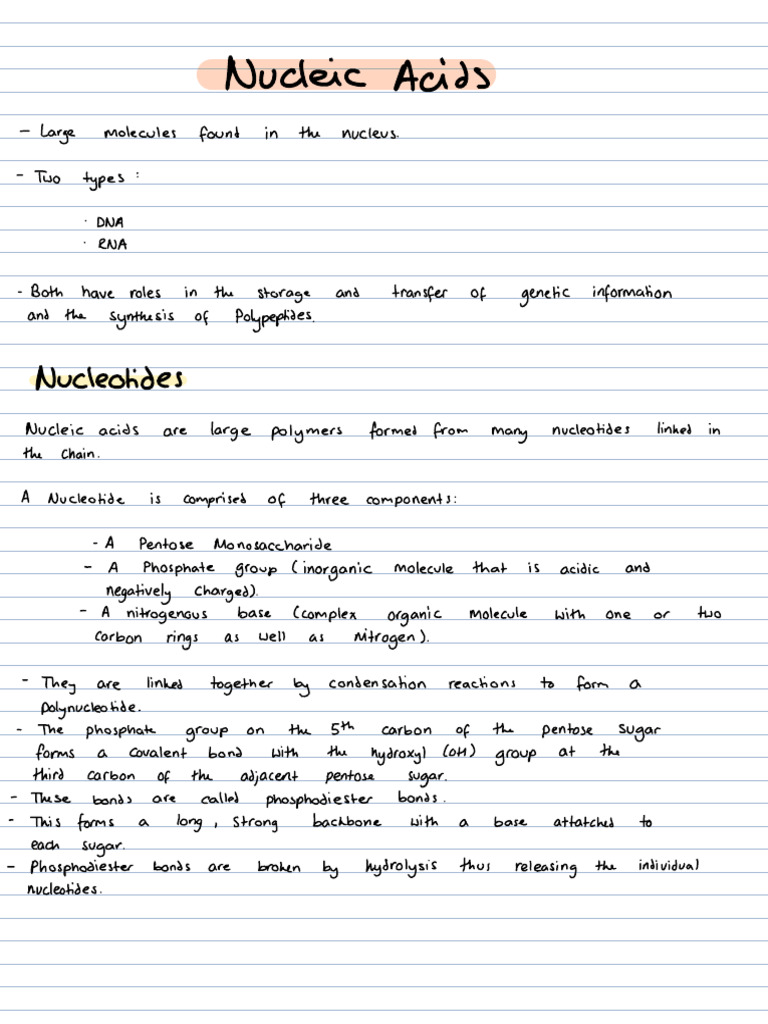 Nucleic Acids
- Large molecules found in the nucleus.
- Two types :
· DNA
· RNA
- Both have roles in the storage and transfer of genetic information
and the synthesis of Polypeptides.
Nucleotides
Nucleic acids are large polymers formed from many nucleotides linked in
the chain.
A Nucleotide is comprised of three components:
- A Pentose Monosaccharide
- A Phosphate group (inorganic molecule that is acidic and
negatively charged).
- A nitrogenous base (complex organic molecule with one or two
carbon rings as well as Nitrogen).
- They are linked together by condensation reactions to form a
polynucleotide.
- The phosphate group on the 5th carbon of the pentose sugar
forms a covalent bond with the hydroxyl (OH) group at the
third carbon of the adjacent pentose sugar.
- These bonds are called phosphodiester bonds.
- This forms a long, strong backbone with a base attatched to
each sugar.
- Phosphodiester bonds are broken by hydrolysis thus releasing the individual
nucleotides.